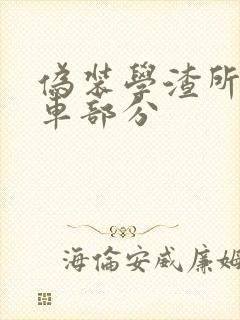 偽裝學渣所
車部分
海倫安威廉姆